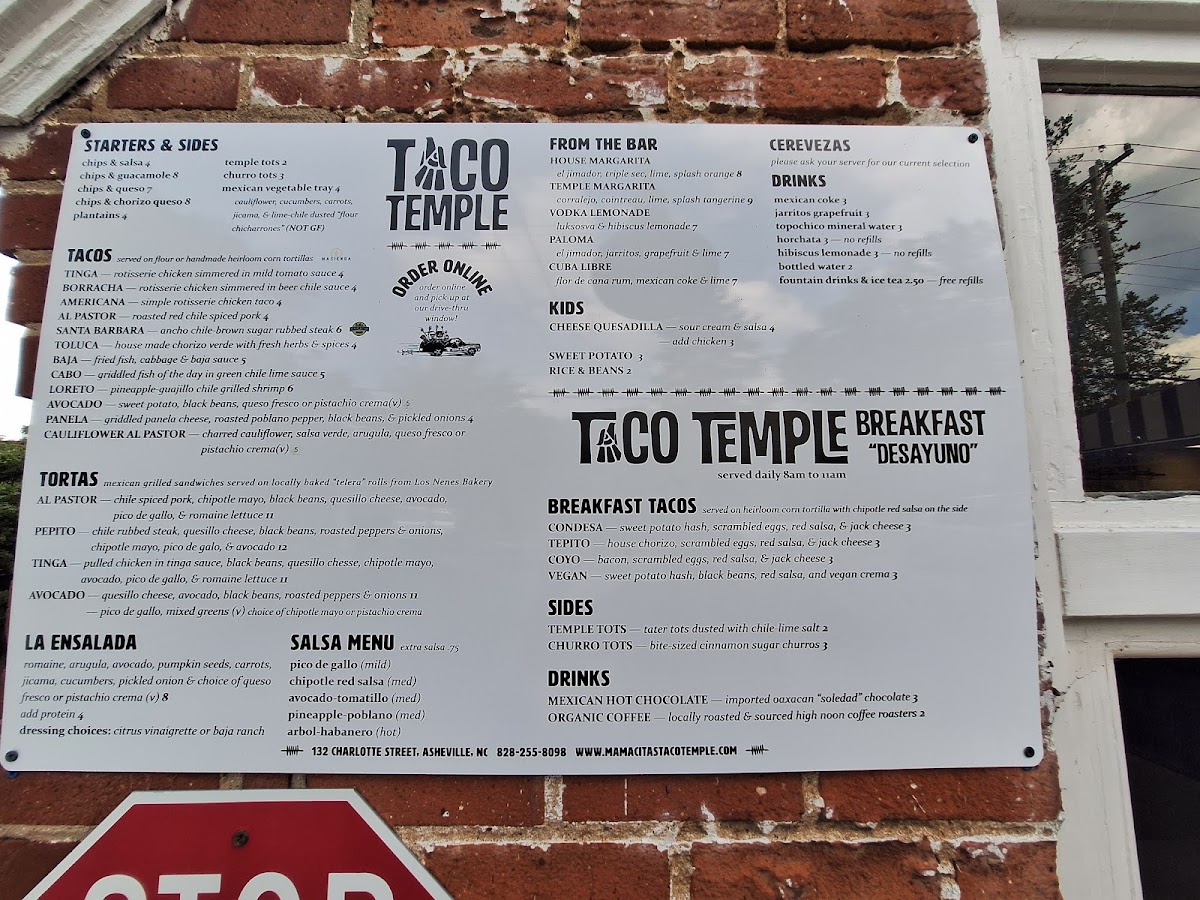 STARTERS & SIDES
chips & salsa 4
chips & guacamole 8
chips & queso 7
chips & chorizo queso 8
plantains 4
temple tots 2
churro tots 3
mexican vegetable tray 4
cauliflower, cucumbers, carrots,
jicama, & lime-chile dusted "flour
chicharrones" (NOT GF)
TACO
TEMPLE
ORDER ONLINE
order online
and pick up at
our drive-thru
window!
TACOS served on flour or handmade heirloom corn tortillas
TINGA — rotisserie chicken simmered in mild tomato sauce 4
BORRACHA — rotisserie chicken simmered in beer chile sauce 4
AMERICANA — simple rotisserie chicken taco 4
AL PASTOR — roasted red chile spiced pork 4
SANTA BARBARA — ancho chile-brown sugar rubbed steak 6
TOLUCA — house made chorizo verde with fresh herbs & spices 4
BAJA — fried fish, cabbage & baja sauce 5
CABO — griddled fish of the day in green chile lime sauce 5
LORETO — pineapple-guajillo chile grilled shrimp 6
AVOCADO — sweet potato, black beans, queso fresco or pistachio crema(v) 5
PANELA — griddled panela cheese, roasted poblano pepper, black beans, & pickled onions 4
CAULIFLOWER AL PASTOR — charred cauliflower, salsa verde, arugula, queso fresco or
pistachio crema(v) 5
TORTAS mexican grilled sandwiches served on locally baked "telera" rolls from Los Nenes Bakery
AL PASTOR — chile spiced pork, chipotle mayo, black beans, quesillo cheese, avocado,
pico de gallo, & romaine lettuce 11
PEPITO — chile rubbed steak, quesillo cheese, black beans, roasted peppers & onions,
chipotle mayo, pico de galo, & avocado 12
TINGA — pulled chicken in tinga sauce, black beans, quesillo chesse, chipotle mayo,
avocado, pico de gallo, & romaine lettuce 11
AVOCADO — quesillo cheese, avocado, black beans, roasted peppers & onions 11
— pico de gallo, mixed greens (v) choice of chipotle mayo or pistachio crema
LA ENSALADA
romaine, arugula, avocado, pumpkin seeds, carrots,
jicama, cucumbers, pickled onion & choice of queso
fresco or pistachio crema (v) 8
add protein 4
dressing choices: citrus vinaigrette or baja ranch
SALSA MENU extra salsa .75
pico de gallo (mild)
chipotle red salsa (med)
avocado-tomatillo (med)
pineapple-poblano (med)
arbol-habanero (hot)
FROM THE BAR
HOUSE MARGARITA
el jimador, triple sec, lime, splash orange 8
TEMPLE MARGARITA
corralejo, cointreau, lime, splash tangerine 9
VODKA LEMONADE
luksosva & hibiscus lemonade 7
PALOMA
el jimador, jarritos, grapefruit & lime 7
CUBA LIBRE
flor de cana rum, mexican coke & lime 7
KIDS
CHEESE QUESADILLA — sour cream & salsa 4
— add chicken 3
SWEET POTATO 3
RICE & BEANS 2
CEREVEZAS
please ask your server for our current selection
DRINKS
mexican coke 3
jarritos grapefruit 3
topochico mineral water 3
horchata 3 — no refills
hibiscus lemonade 3 — no refills
bottled water 2
fountain drinks & ice tea 2.50 — free refills
TACO TEMPLE BREAKFAST
"DESAYUNO"
served daily 8am to 11am
BREAKFAST TACOS served on heirloom corn tortilla with chipotle red salsa on the side
CONDESA — sweet potato hash, scrambled eggs, red salsa, & jack cheese 3
TEPITO — house chorizo, scrambled eggs, red salsa, & jack cheese 3
COYO — bacon, scrambled eggs, red salsa, & jack cheese 3
VEGAN — sweet potato hash, black beans, red salsa, and vegan crema 3
SIDES
TEMPLE TOTS — tater tots dusted with chile-lime salt 2
CHURRO TOTS — bite-sized cinnamon sugar churros 3
DRINKS
MEXICAN HOT CHOCOLATE — imported oaxacan "soledad" chocolate 3
ORGANIC COFFEE — locally roasted & sourced high noon coffee roasters 2
132 CHARLOTTE STREET, ASHEVILLE, NC 828-255-8098 WWW.MAMACITASTACOTEMPLE.COM
STOP